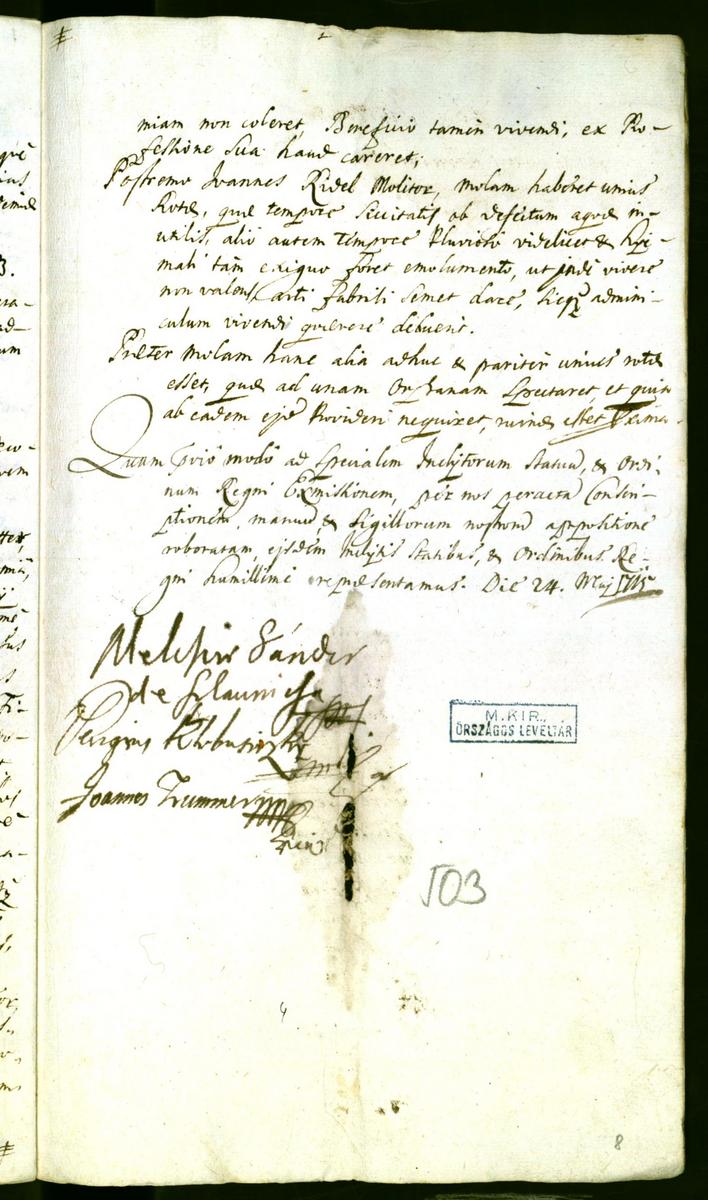 miam non coleret, Beneficio tamen vivendi, ex Pro-
fessione Sua haud careret,
Postremo Joannes Ridel Molitor, molam haberet unius
Rotæ, quæ tempore Siccitatis ob defectum aquæ in-
utilis, alio autem tempore Pluvioso videlicet & Hye-
mali tam exiguo foret emolumento, ut inde vivere
non valens, arti fabrili semet dare, sicq admini-
culum vivendi quærere debuerit.
Præter Molam hanc alia adhuc & pariter unius rotæ
esset, quæ ad unam Orphanam Spectaret, et quia
ab eadem Provideri nequiret, ruinæ esset
Quam modo ad Specialem Inclytorum Statuū, & Ordi-
num Regni Exmissionem, per nos peractā Conscri-
ptionem, manuū & Sigillorum appositione
roboratam, ejsdem Inclytis Statibus, & Ordinibus Re-
gni humillime repræsentamus. Die 24. Maij 1715
Melchior Sándor
de Szlavnicza
Klobusiczky
Joannes Trummer
M. KIR.
ORSZÁGOS LEVÉLTÁR
503
8